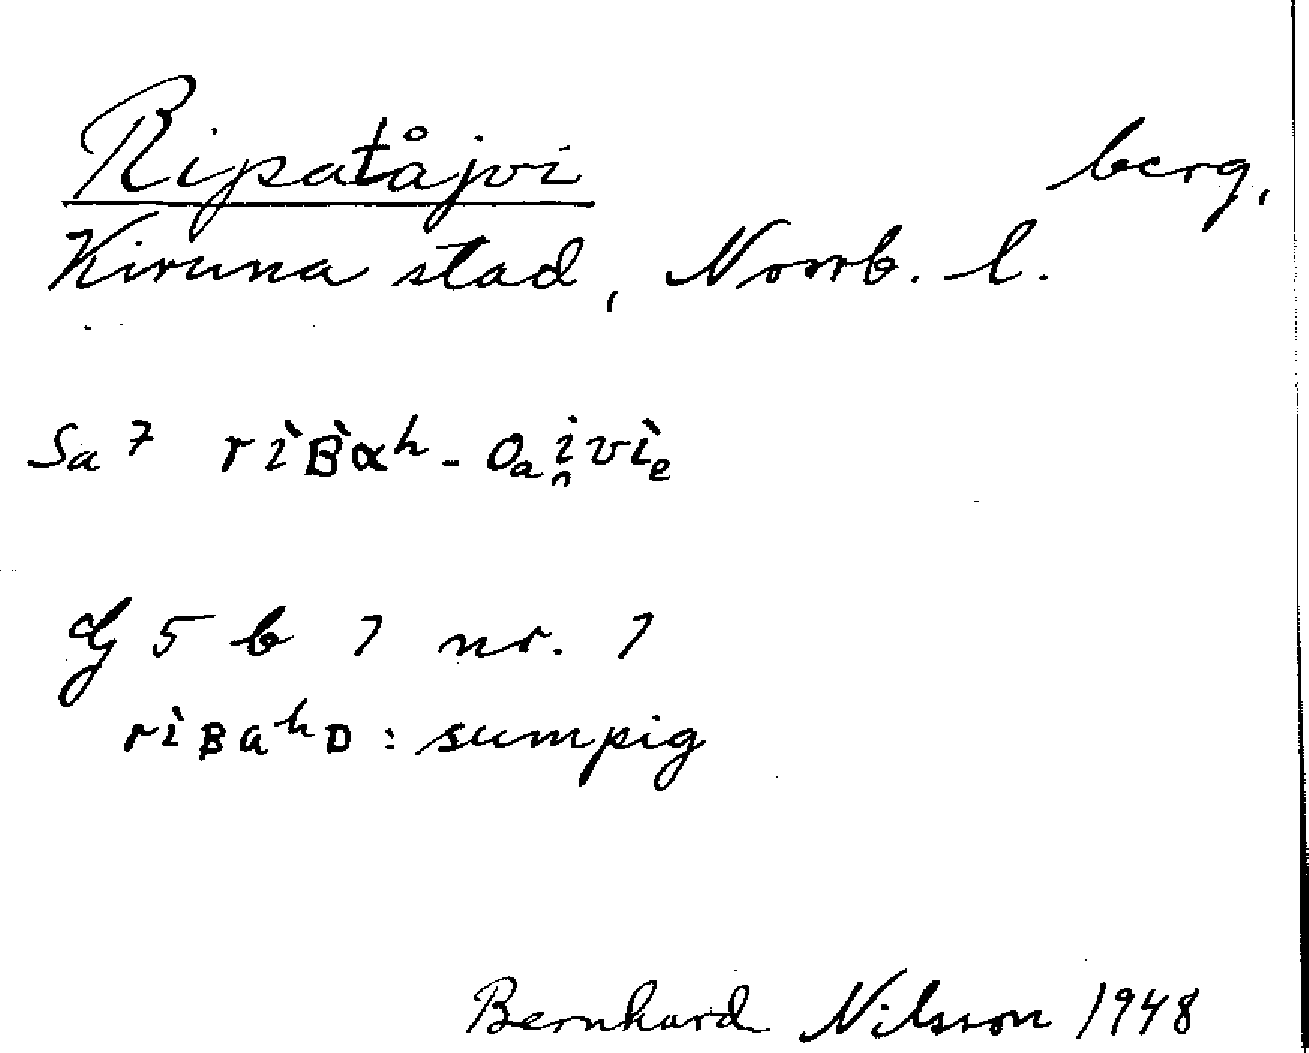 Ripatåjvi berg,
Kiruna stad, Norrb. l.
Sa 7 rìB̀αʰ-oₐi̯vìₑ
G 5 b 7 nr. 7
rìBaʰD: sumpig
Bernhard Nilsson 1948